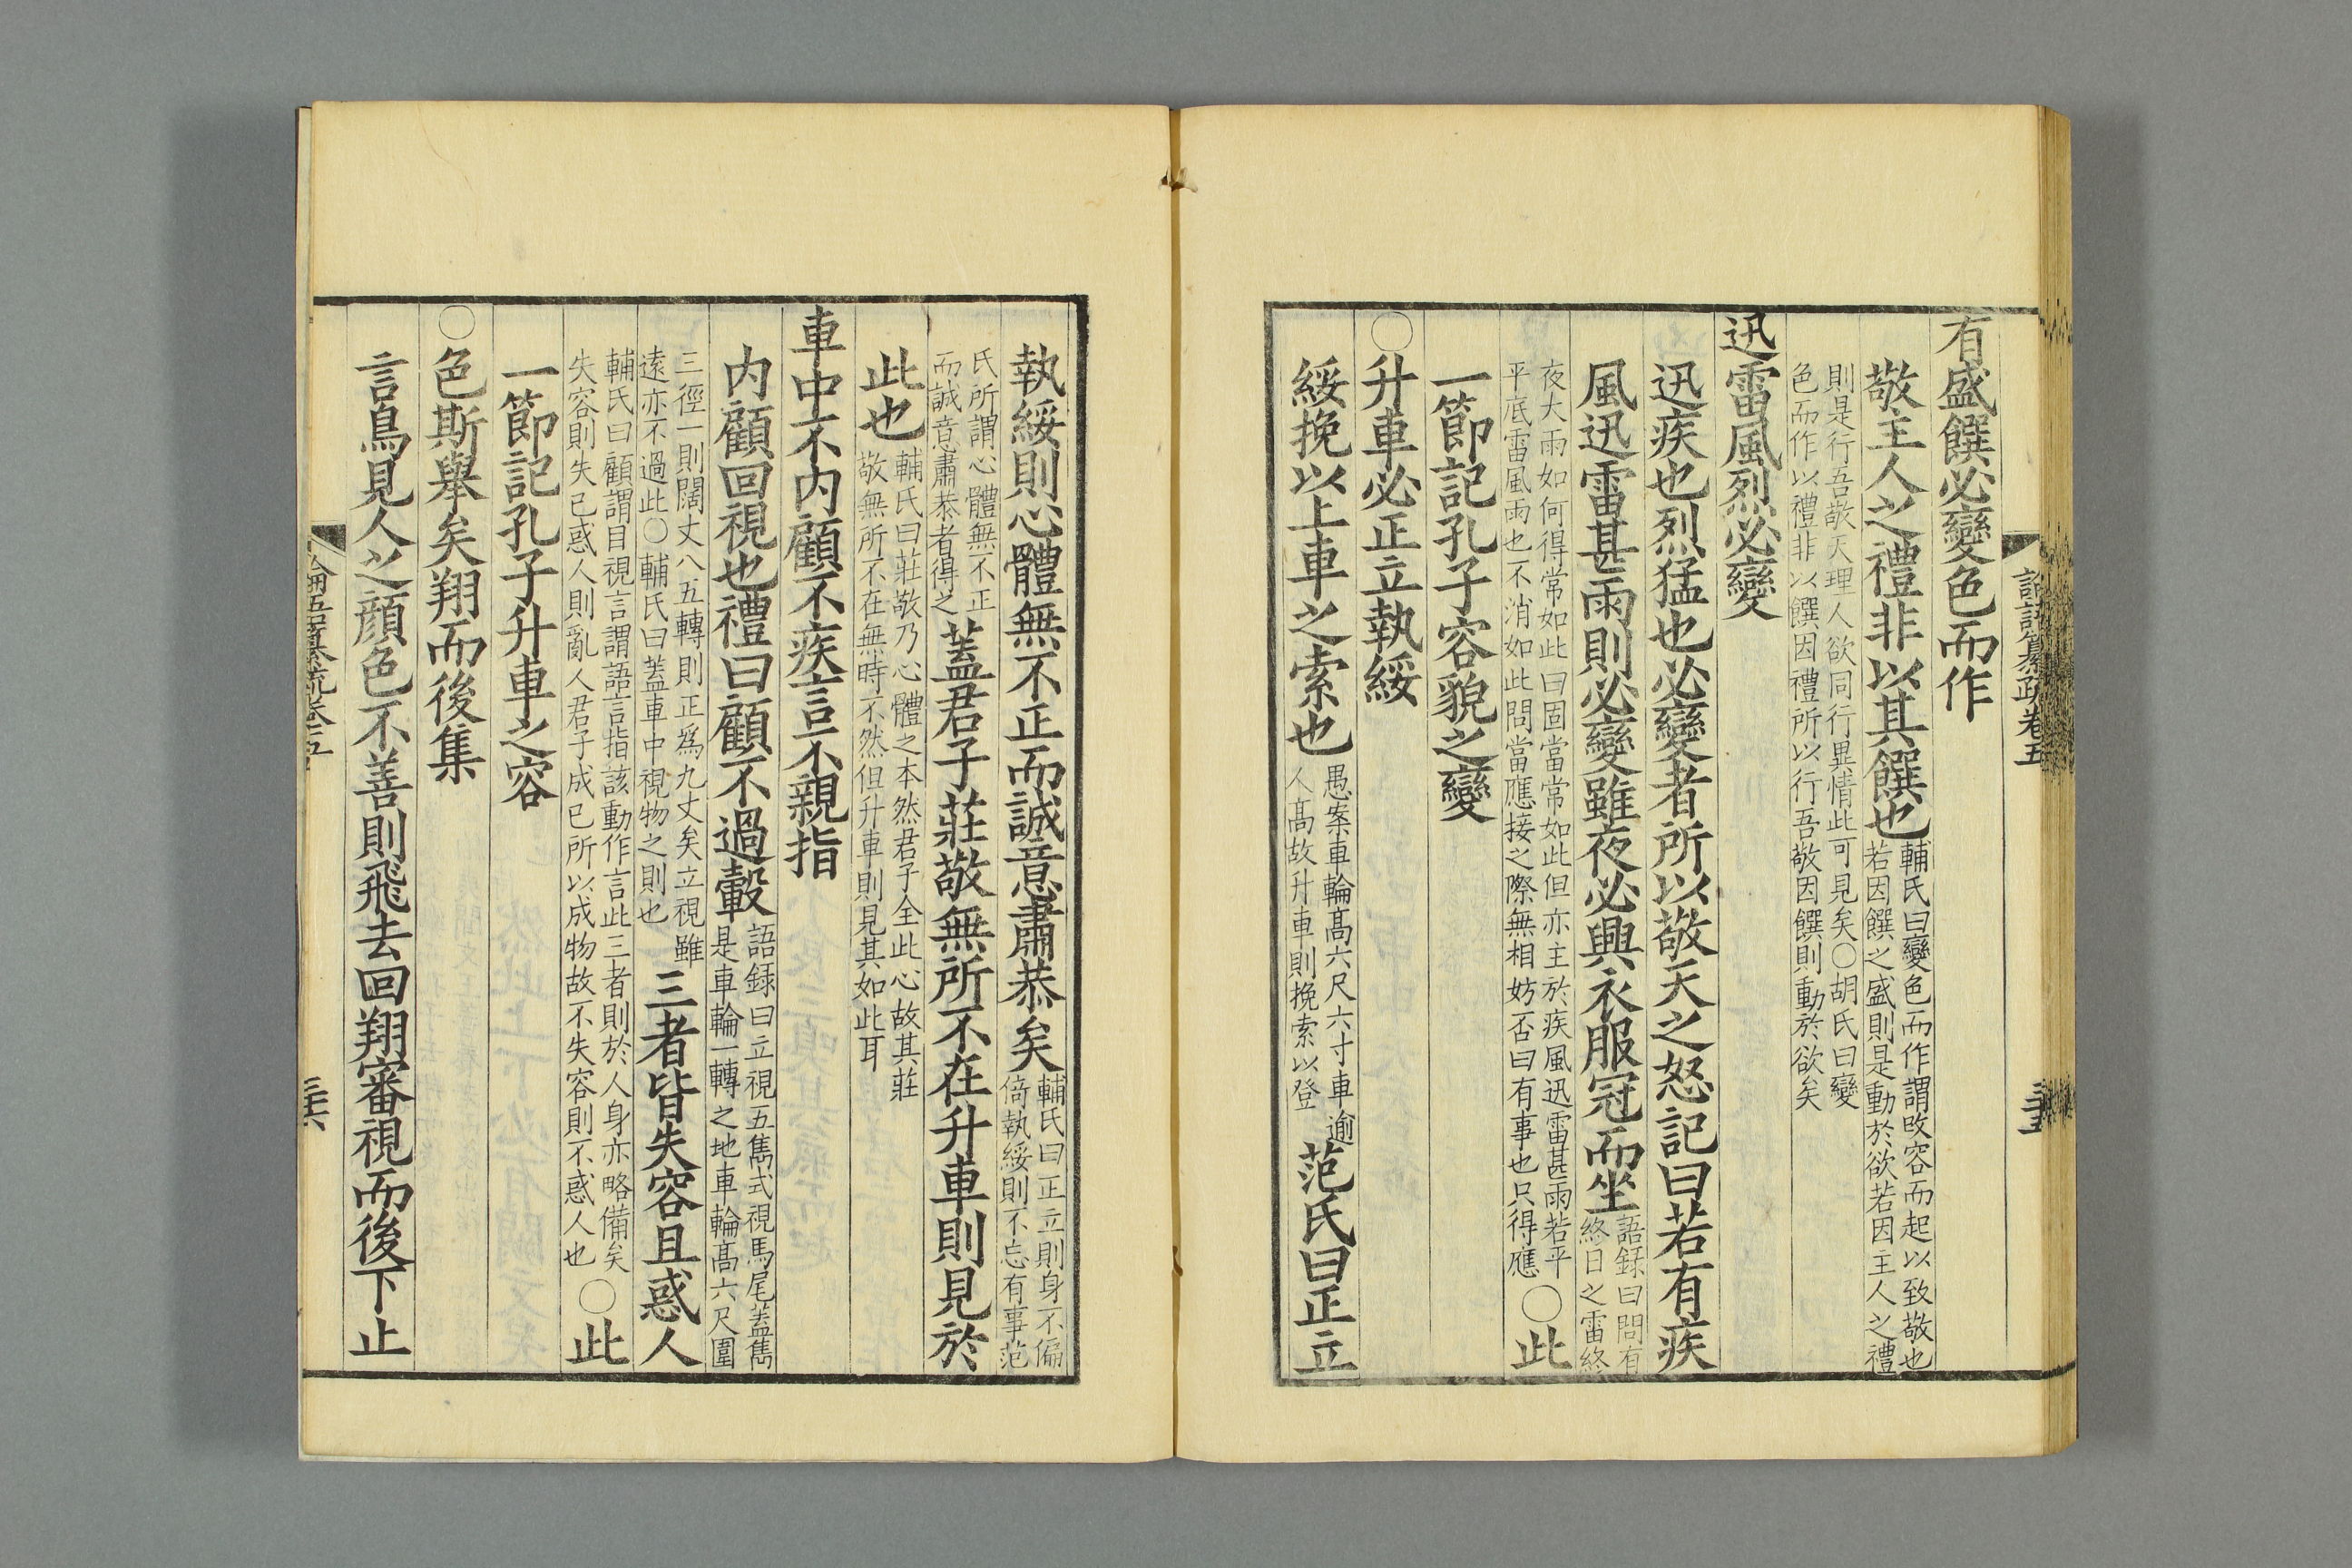 論語纂疏卷五
三十五
有盛饌必變色而作
敬主人之禮非以其饌也輔氏曰變色而作謂改容而起以致敬也若因饌之盛則是動於欲若因主人之禮
則是行吾敬天理人欲同行異情此可見矣○胡氏曰變色而作以禮非以饌因禮所以行吾敬因饌則動於欲矣
迅雷風烈必變
迅疾也烈猛也必變者所以敬天之怒記曰若有疾
風迅雷甚雨則必變雖夜必興衣服冠而坐語録曰問有終日之雷終
夜大雨如何得常如此曰固當常如此但亦主於疾風迅雷甚雨若平平底雷風雨也不消如此問當應接之際無相妨否曰有事也只得應○此
一節記孔子容貌之變
○升車必正立執綏
綏挽以上車之索也愚案車輪高六尺六寸車逾人高故升車則挽索以登范氏曰正立
執綏則心體無不正而誠意肅恭矣輔氏曰正立則身不偏倚執綏則不忘有事范
氏所謂心體無不正而誠意肅恭者得之蓋君子莊敬無所不在升車則見於
此也輔氏曰莊敬乃心體之本然君子全此心故其莊敬無所不在無時不然但升車則見其如此耳
車中不内顧不疾言不親指
内顧回視也禮曰顧不過轂語録曰立視五雋式視馬尾蓋雋是車輪一轉之地車輪高六尺圍
三徑一則闊丈八五轉則正爲九丈矣立視雖遠亦不過此○輔氏曰蓋車中視物之則也三者皆失容且惑人
輔氏曰顧謂目視言謂語言指該動作言此三者則於人身亦略備矣失容則失己惑人則亂人君子成己所以成物故不失容則不惑人也○此
一節記孔子升車之容
○色斯舉矣翔而後集
言鳥見人之顔色不善則飛去回翔審視而後下止
論語纂疏卷五
三十六